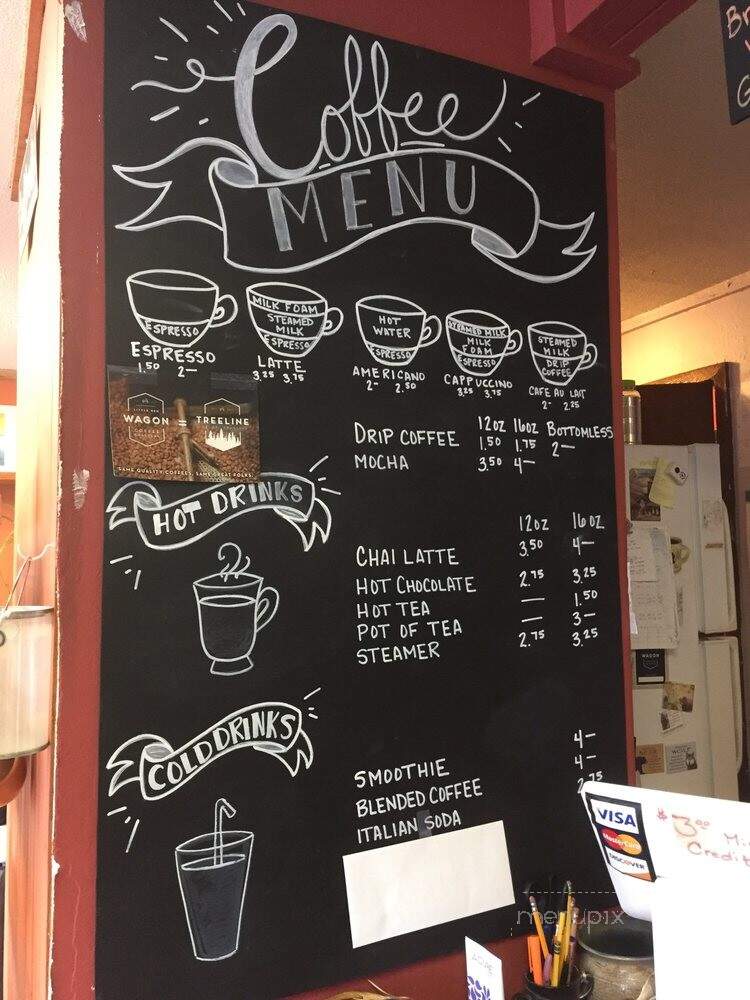 Coffee
MENU
ESPRESSO
MILK FOAM
STEAMED
MILK
ESPRESSO
HOT
WATER
ESPRESSO
STEAMED MILK
MILK
FOAM
ESPRESSO
STEAMED
MILK
DRIP
COFFEE
ESPRESSO
1.50 2—
LATTE
3.25 3.75
AMERICANO
2— 2.50
CAPPUCCINO
3.25 3.75
CAFE AU LAIT
2— 2.25
WAGON = TREELINE
COFFEE
SAME QUALITY COFFEES, SAME GREAT FOLKS.
12oz 16oz BOTTOMLESS
DRIP COFFEE 1.50 1.75 2—
MOCHA 3.50 4—
HOT DRINKS
12oz 16oz
CHAI LATTE 3.50 4—
HOT CHOCOLATE 2.75 3.25
HOT TEA — 1.50
POT OF TEA — 3—
STEAMER 2.75 3.25
COLD DRINKS
SMOOTHIE 4—
BLENDED COFFEE 4—
ITALIAN SODA 2.75
VISA
MasterCard
DISCOVER
$3.00 Mi
Credit
WAGON
menupix